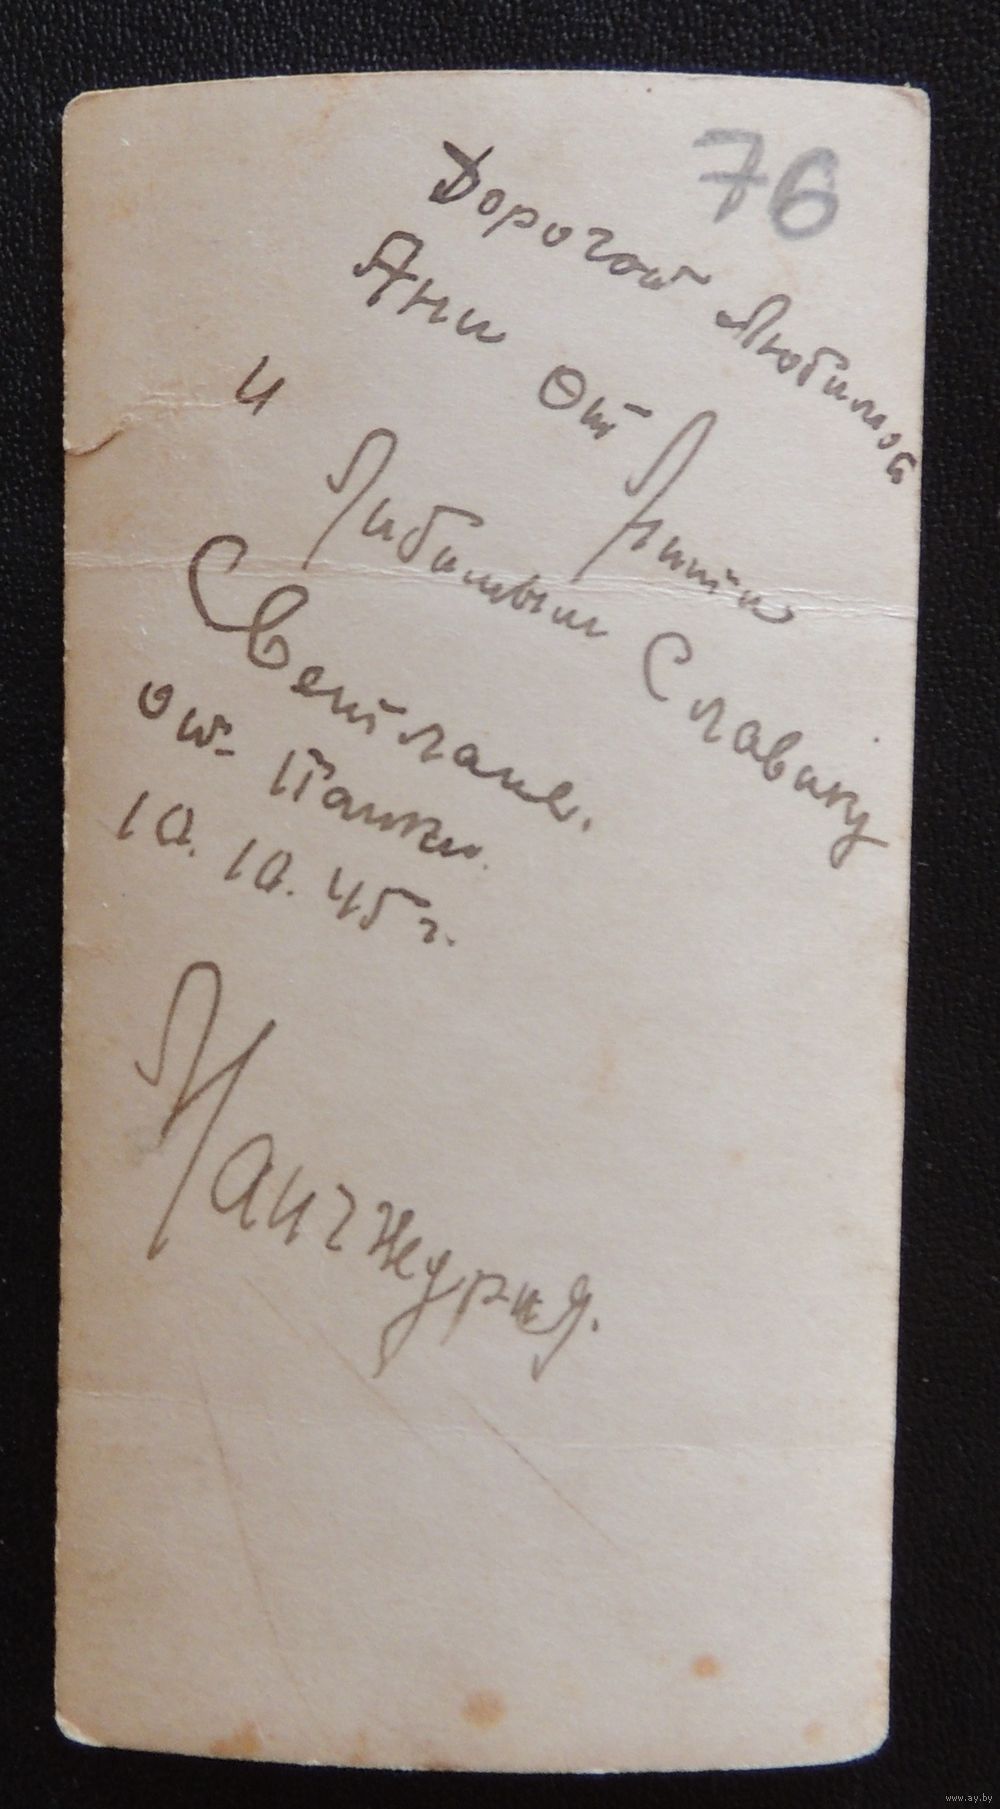 76
Дорогой Любимой
Ани от Мити
и Любимым Славику
Светлане.
от Папки.
10. 10. 45 г.
Манчжурия.
www.ay.by